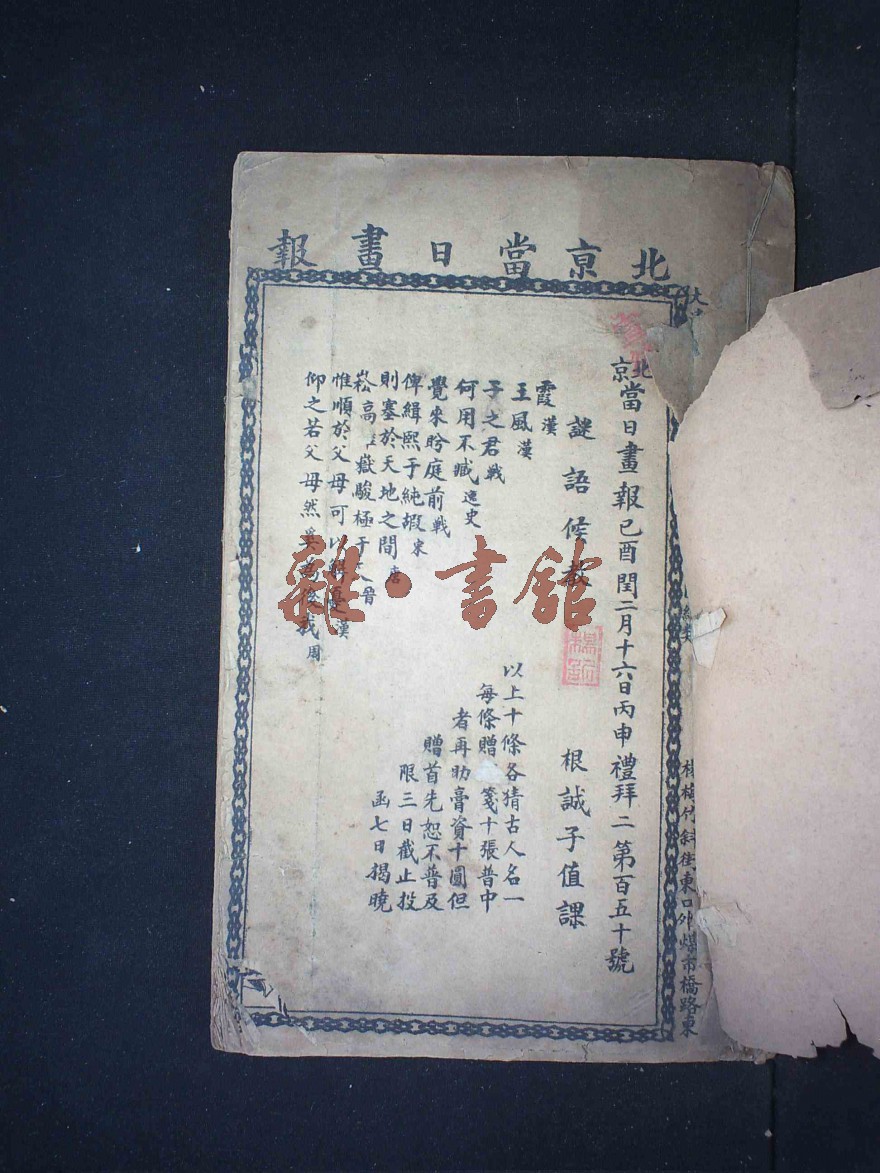 北京當日畫報
北京當日畫報己酉閏二月十六日丙申禮拜二第百五十號
謎語候教 根誠子值課
霞漢
王風漢
子之君戰
何用不臧逸史
覺來盼庭前戰
俾緝熙于純嘏宋
則塞於天地之間唐
崧高維嶽駿極于天晉
惟順於父母可以解憂漢
仰之若父母然奚為後我周
以上十條各猜古人名一
每條贈箋十張普中
者再助膏資十圓但
贈首先恕不普及
限三日截止投
函七日揭曉
楊梅竹斜街東口外煤市橋路東
雜·書館